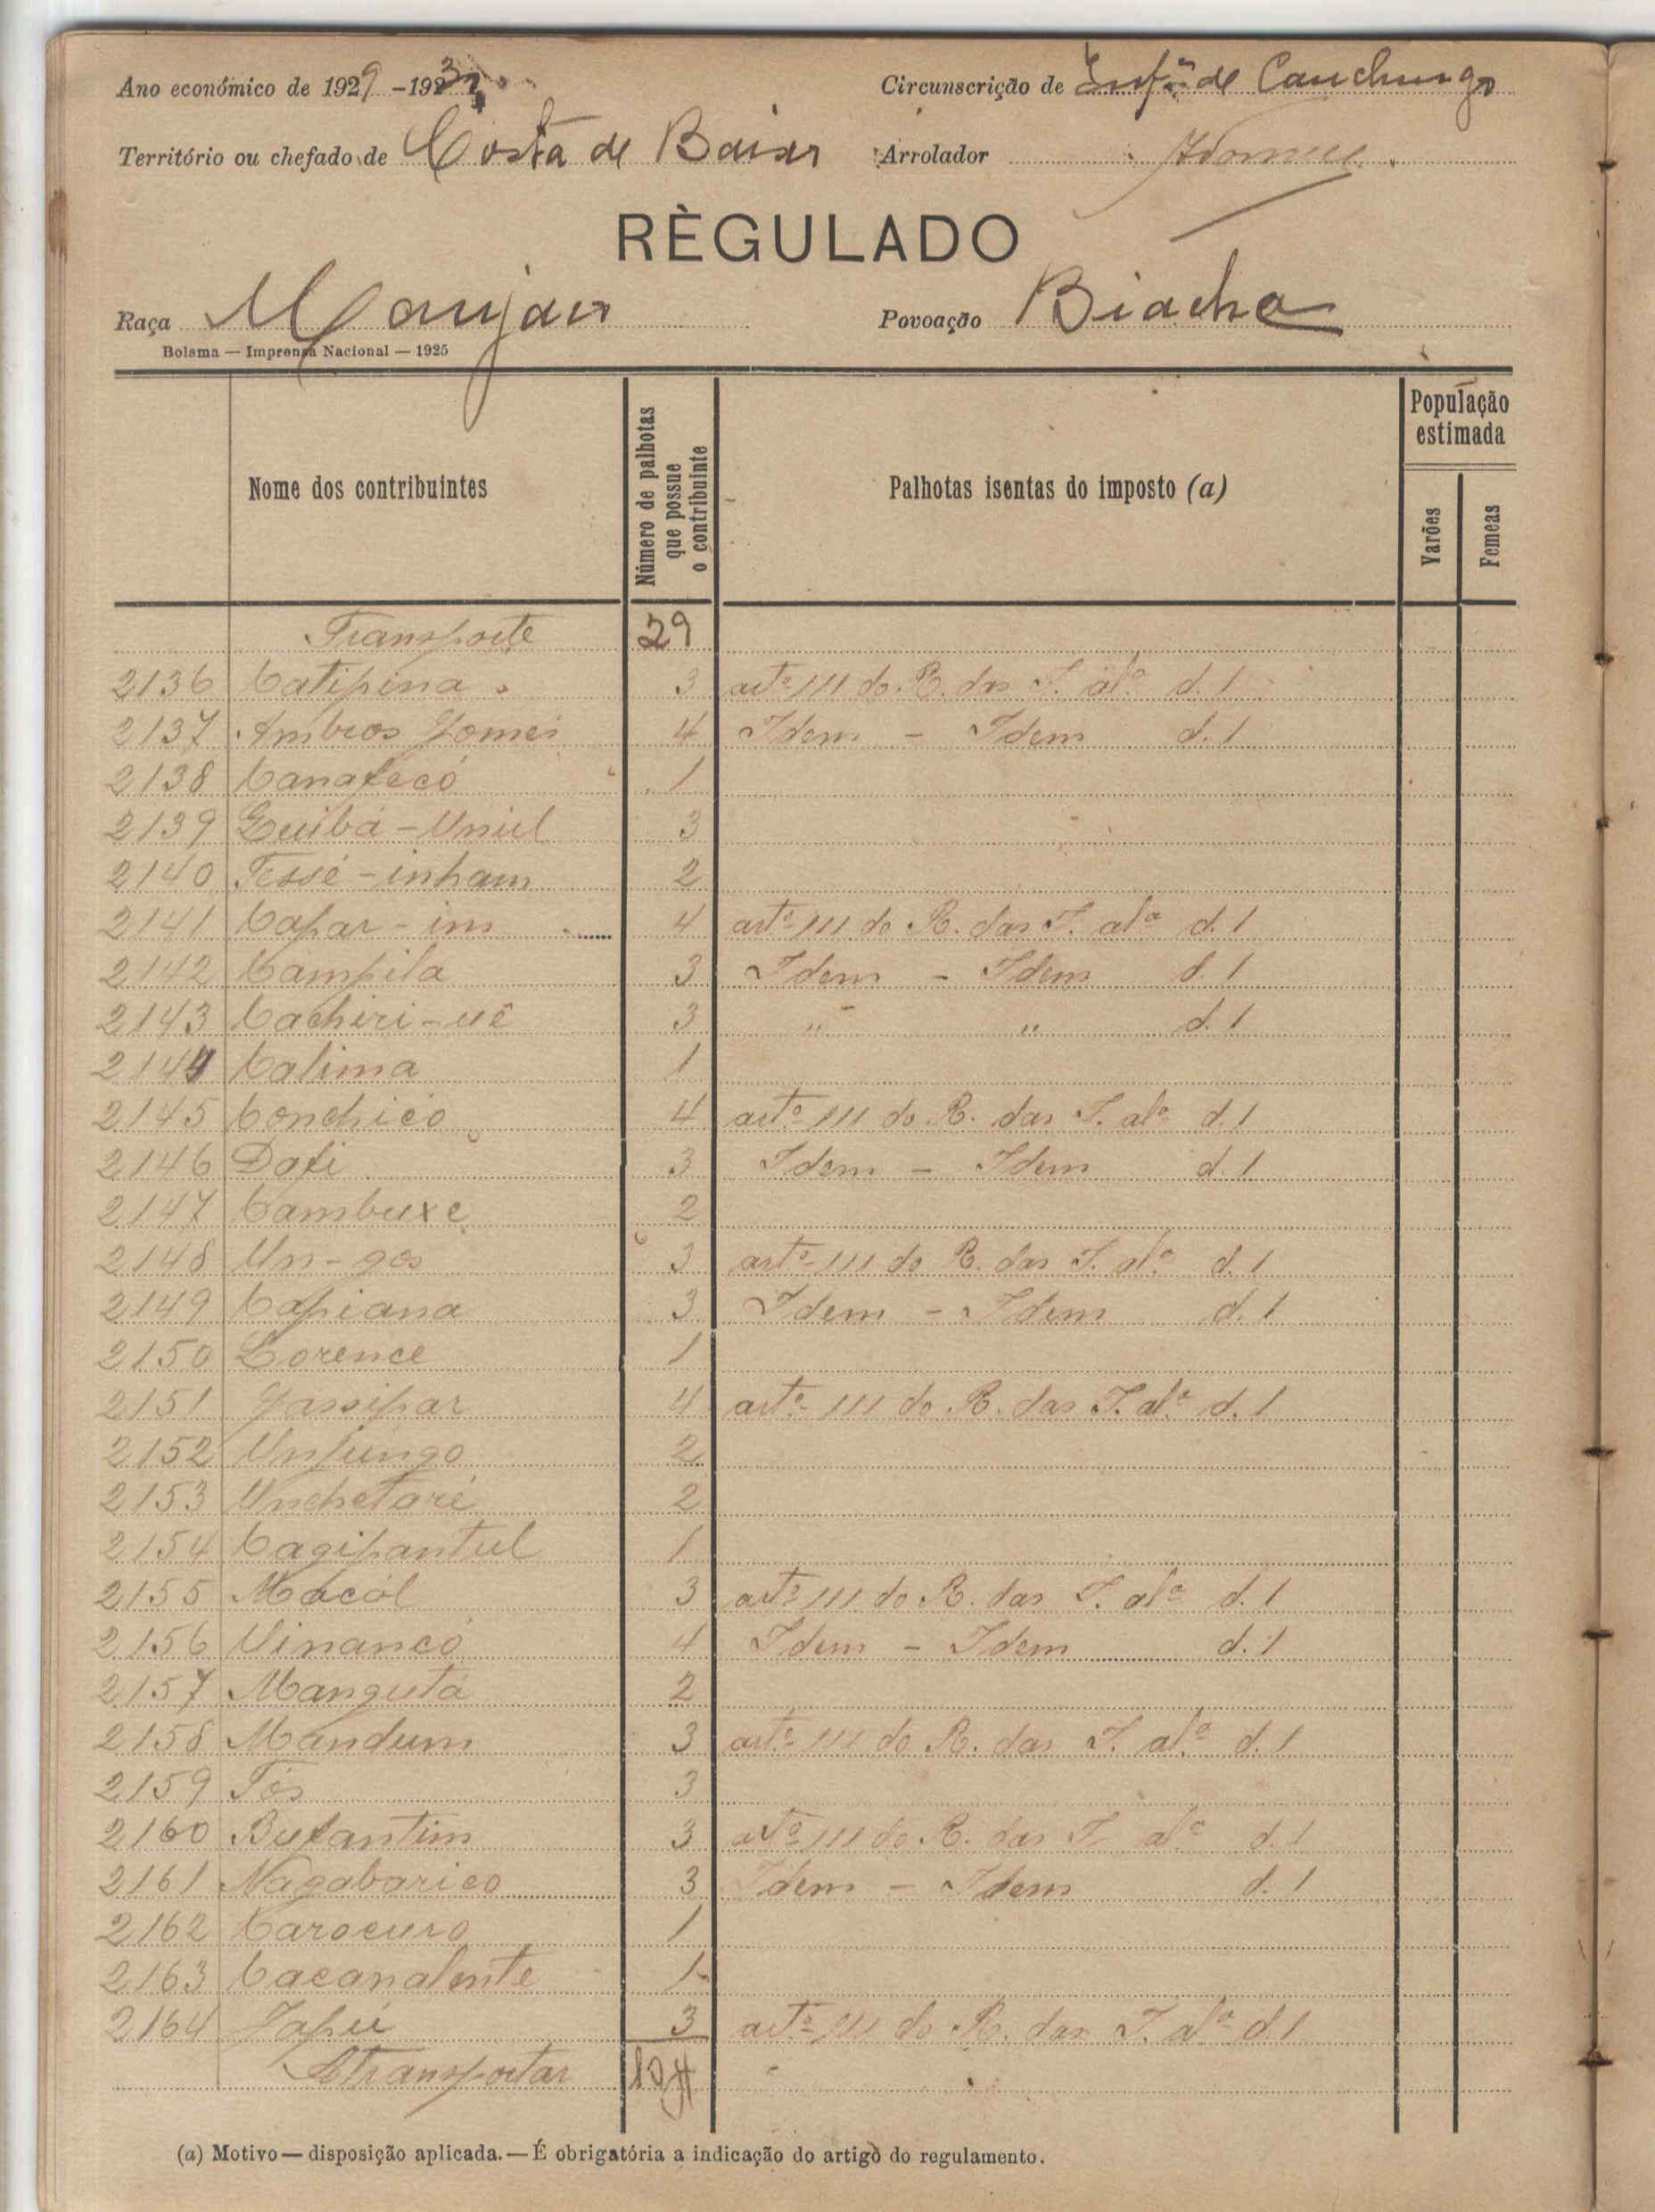 Ano económico de 1929 -193
Circunscrição de de Canchungo
Território ou chefado de Costa de Baixo
Arrolador
RÈGULADO
Raça Manjaco
Povoação Biacha
Bolama — Imprensa Nacional — 1925
Nome dos contribuintes
Número de palhotas que possue o contribuinte
Palhotas isentas do imposto (a)
População estimada
Varões
Femeas
Transporte 29
2136 Catipina 3 artº 111 do R. das I. alª d. 1
2137 Ambros Gomes 4 Idem - Idem d. 1
2138 Canatecó 1
2139 Guibá - Uniel 3
2140 Tessé - inham 2
2141 Capar - im 4 artº 111 do R. das I. alª d. 1
2142 Campila 3 Idem - Idem d. 1
2143 Cachiri - uê 3 " " d. 1
2144 Calima 1
2145 Conchico 4 artº 111 do R. das I. alª d. 1
2146 Dafi 3 Idem - Idem d. 1
2147 Cambuxe 2
2148 Un - gos 3 artº 111 do R. das I. alª d. 1
2149 Capiana 3 Idem - Idem d. 1
2150 Lorence 1
2151 Jassipar 4 artº 111 do R. das I. alª d. 1
2152 Unfungo 2
2153 Unchetaré 2
2154 Cagipantul 1
2155 Macól 3 artº 111 do R. das I. alª d. 1
2156 Uinancó 4 Idem - Idem d. 1
2157 Mangutá 2
2158 Mandum 3 artº 111 do R. das I. alª d. 1
2159 Tós 3
2160 Butantim 3 artº 111 do R. das I. alª d. 1
2161 Nagabarico 3 Idem - Idem d. 1
2162 Carocuro 1
2163 Cacanalente 1
2164 Japú 3 artº 111 do R. das I. alª d. 1
A transportar
(a) Motivo — disposição aplicada. — É obrigatória a indicação do artigo do regulamento.